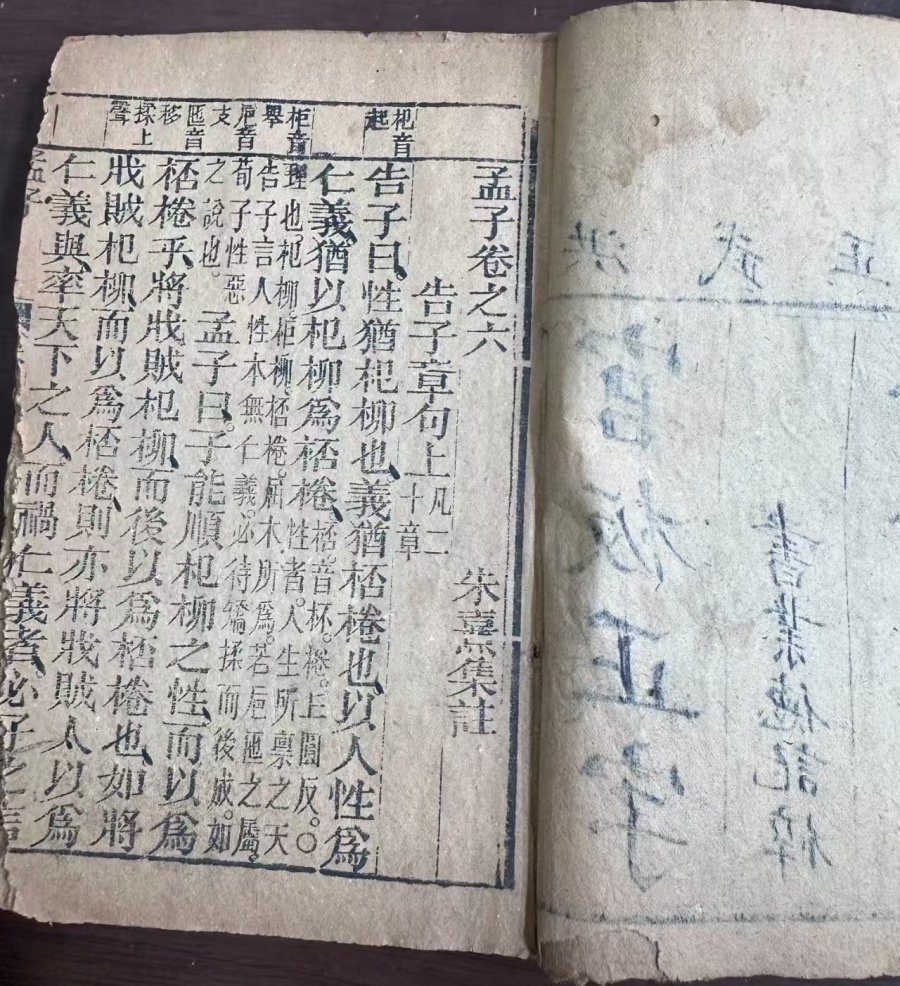 洪武正
板正字
書業德記梓
杞音
起
柜音
舉
巵音
支
匜音
移
揉上
聲
孟子卷之六
朱熹集註
告子章句上
凡二
十章
告子曰性猶杞柳也義猶桮棬也以人性爲
仁義猶以杞柳爲桮棬
桮音杯。棬。丘圓反。〇
性者。人生所禀之天
理也杞柳。柜柳。桮棬。屈木所爲。若巵匜之屬。
告子言人性本無仁義。必待矯揉而後成。如
荀子性惡
之說也。
孟子曰子能順杞柳之性而以爲
桮棬乎將戕賊杞柳而後以爲桮棬也如將
戕賊杞柳而以爲桮棬則亦將戕賊人以爲
仁義與率天下之人而禍仁義者必子之言
孟子